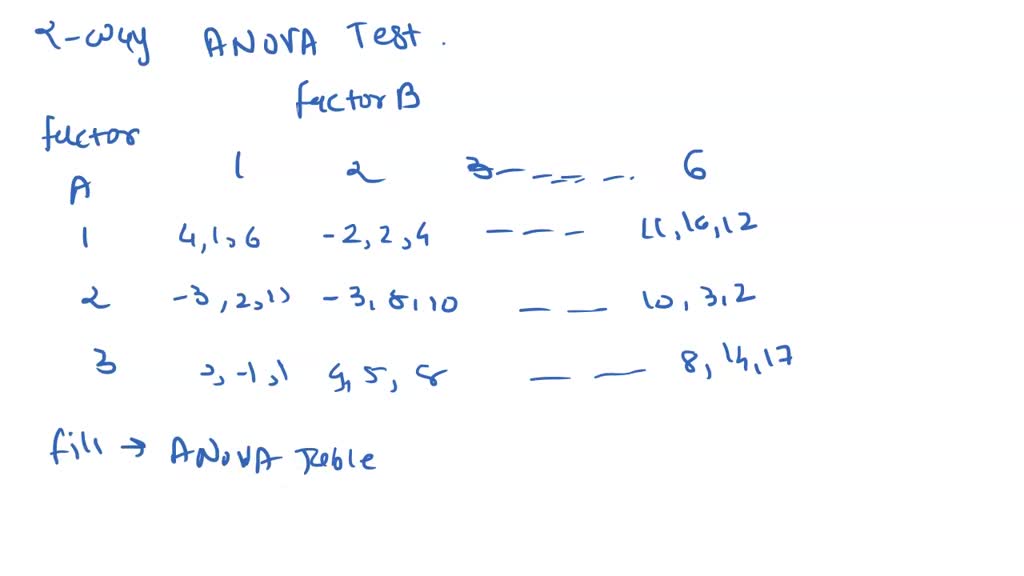 2-way ANOVA Test.
factor B
factor
A
1 2 3 - - - - . 6
1 4, 1, 6 -2, 2, 4 - - - 11, 10, 12
2 -3, 2, -3, 8, 10 - - 10, 3, 2
3 -1, 1 5, 8 - - 8, 14, 17
fill → ANOVA Table